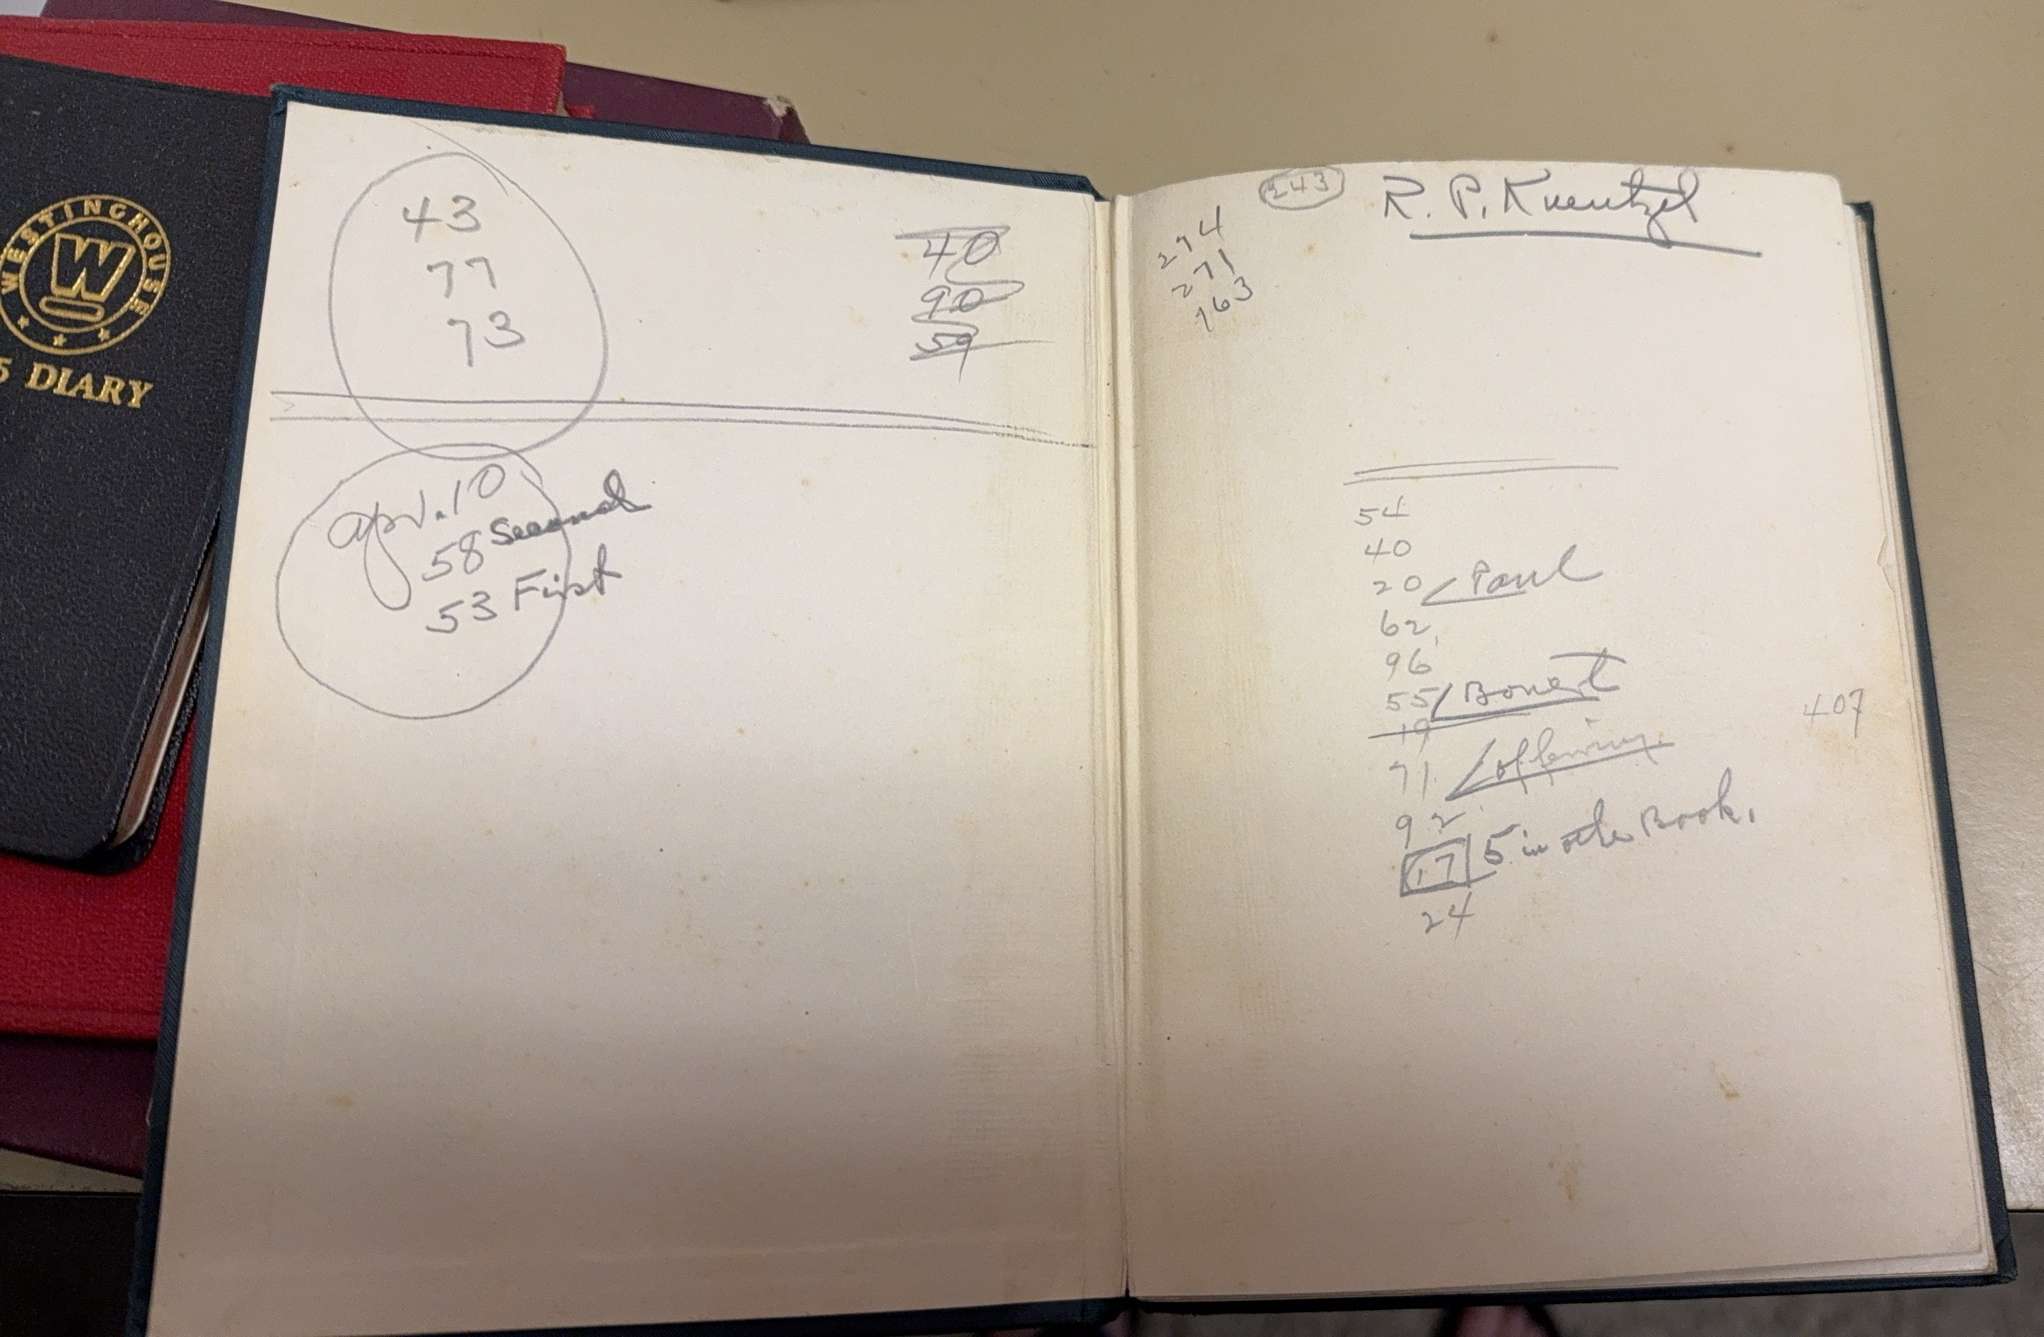 WESTINGHOUSE
W
5 DIARY
43
77
73
40
90
59
Apr. 10
58 Second
53 First
243
R. P. Kuentzel
274
271
163
54
40
20 Paul
62
96
55
19
71 Offering
92
17 5 in other Book.
24
407